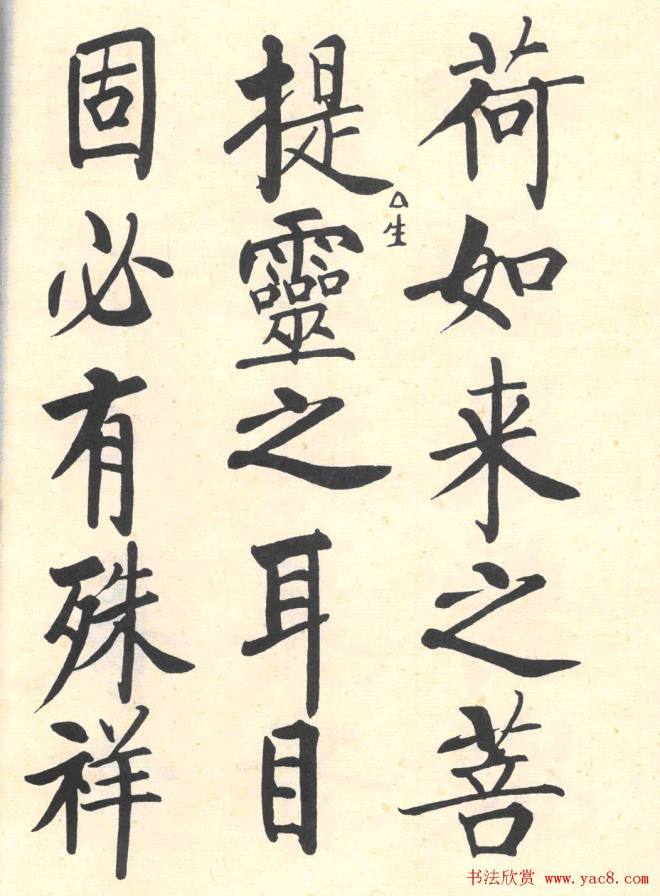 荷如来之菩
提△生靈之耳目
固必有殊祥
书法欣赏 www.yac8.com